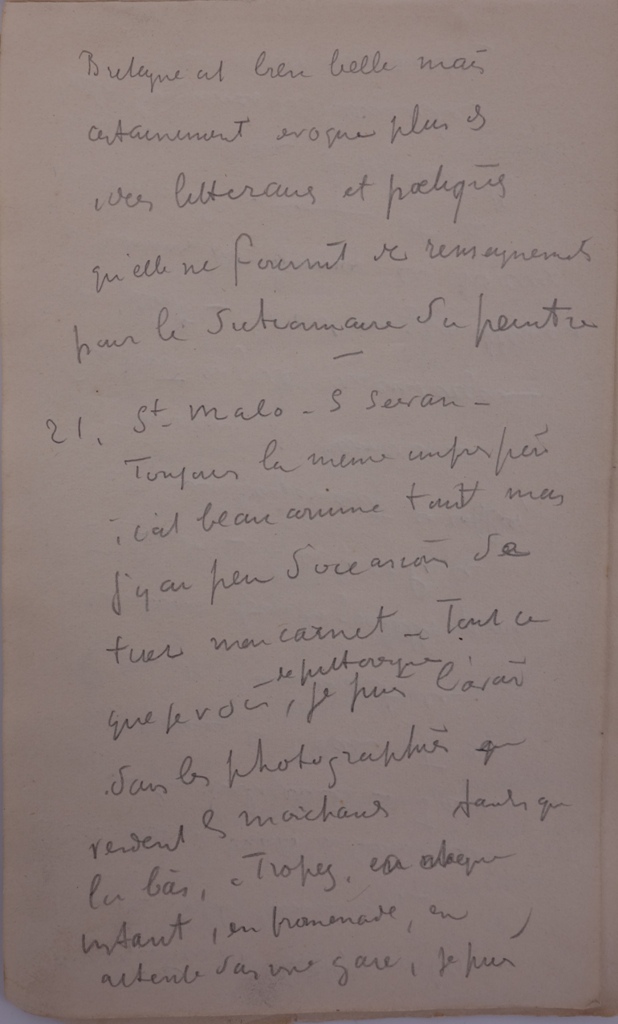 Bretagne est bien belle mais
certainement evoque plus des
idées litteraires et poetiques
qu'elle ne fournit de renseignements
pour le Dictionnaire du peintre
—
21. St-Malo - S Servan -
Toujours la meme
ici est beau anime tout mais
j'y ai peu d'occasions de
tirer mon carnet - Tout ce
que je vois de pittoresque, je puis l'avoir
dans les photographies que
vendent les marchands tandis que
la bas, a Tropez, en chaque
instant, en promenade, en
attente dans une gare, je puis